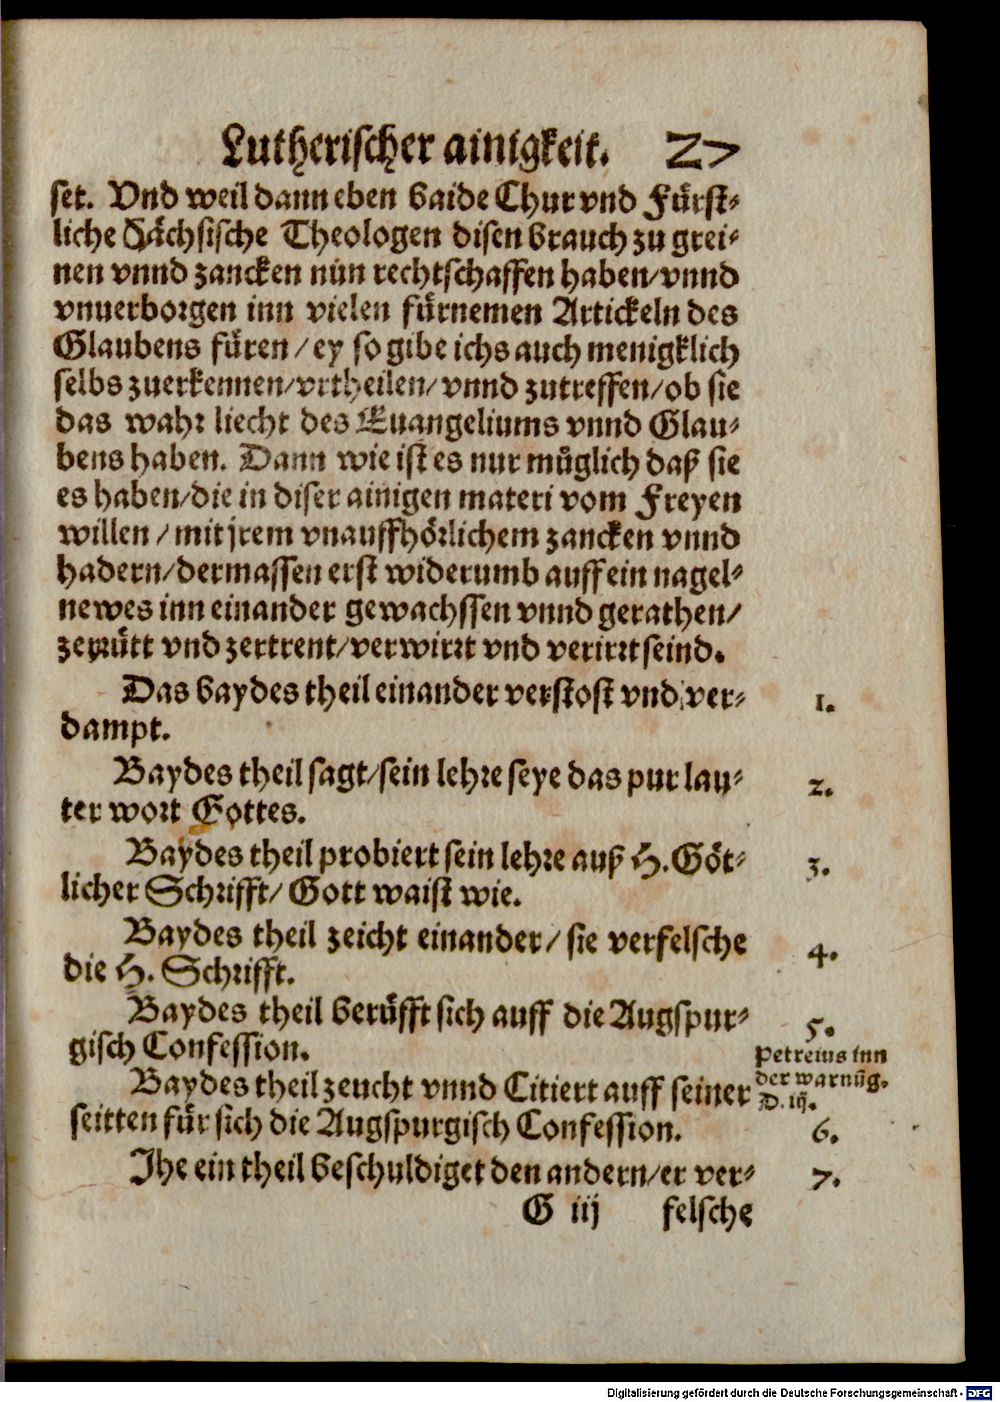 Lutherischer ainigkeit. 27
set. Vnd weil dann eben baide Chur vnd Fürst-
liche Sächsische Theologen disen brauch zu grei-
nen vnnd zancken nün rechtschaffen haben/vnnd
vnuerborgen inn vielen fürnemen Artickeln des
Glaubens füren/ey so gibe ichs auch menigklich
selbs zuerkennen/vrtheilen/vnnd zutreffen/ob sie
das wahr liecht des Euangeliums vnnd Glau-
bens haben. Dann wie ist es nur müglich daß sie
es haben/die in diser ainigen materi vom Freyen
willen/mit jrem vnauffhörlichem zancken vnnd
hadern/dermassen erst widerumb auff ein nagel-
newes inn einander gewachssen vnnd gerathen/
zerrütt vnd zertrent/verwirrt vnd verirrt seind.
Das baydes theil einander verstost vnd ver- 1.
dampt.
Baydes theil sagt/sein lehre seye das pur lau- 2.
ter wort Gottes.
Baydes theil probiert sein lehre auß H. Göt- 3.
licher Schrifft/Gott waist wie.
Baydes theil zeicht einander/sie verfelsche 4.
die H. Schrifft.
Baydes theil berüfft sich auff die Augspur- 5.
gisch Confession.
Petreius inn
der warnūg.
D. iij.
Baydes theil zeucht vnnd Citiert auff seiner
seitten für sich die Augspurgisch Confession. 6.
Jhe ein theil beschuldiget den andern/er ver- 7.
G iij felsche
Digitalisierung gefördert durch die Deutsche Forschungsgemeinschaft - DFG